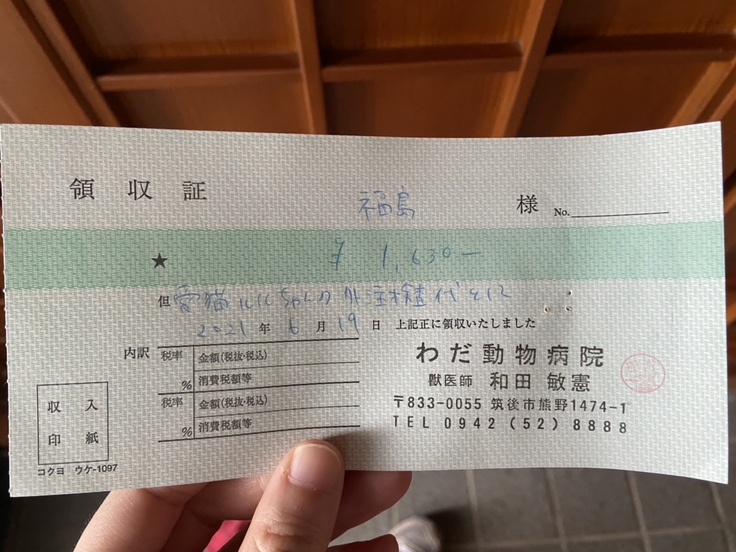 領収証
福島 様 No.
★ ¥1,630-
但 愛猫ルルちゃんの外注検査代として
2021年6月19日 上記正に領収いたしました
内訳 税率 金額(税抜・税込)
% 消費税額等
税率 金額(税抜・税込)
% 消費税額等
収入
印紙
コクヨ ウケ-1097
わだ動物病院
獣医師 和田 敏憲
〒833-0055 筑後市熊野1474-1
TEL 0942 (52) 8888